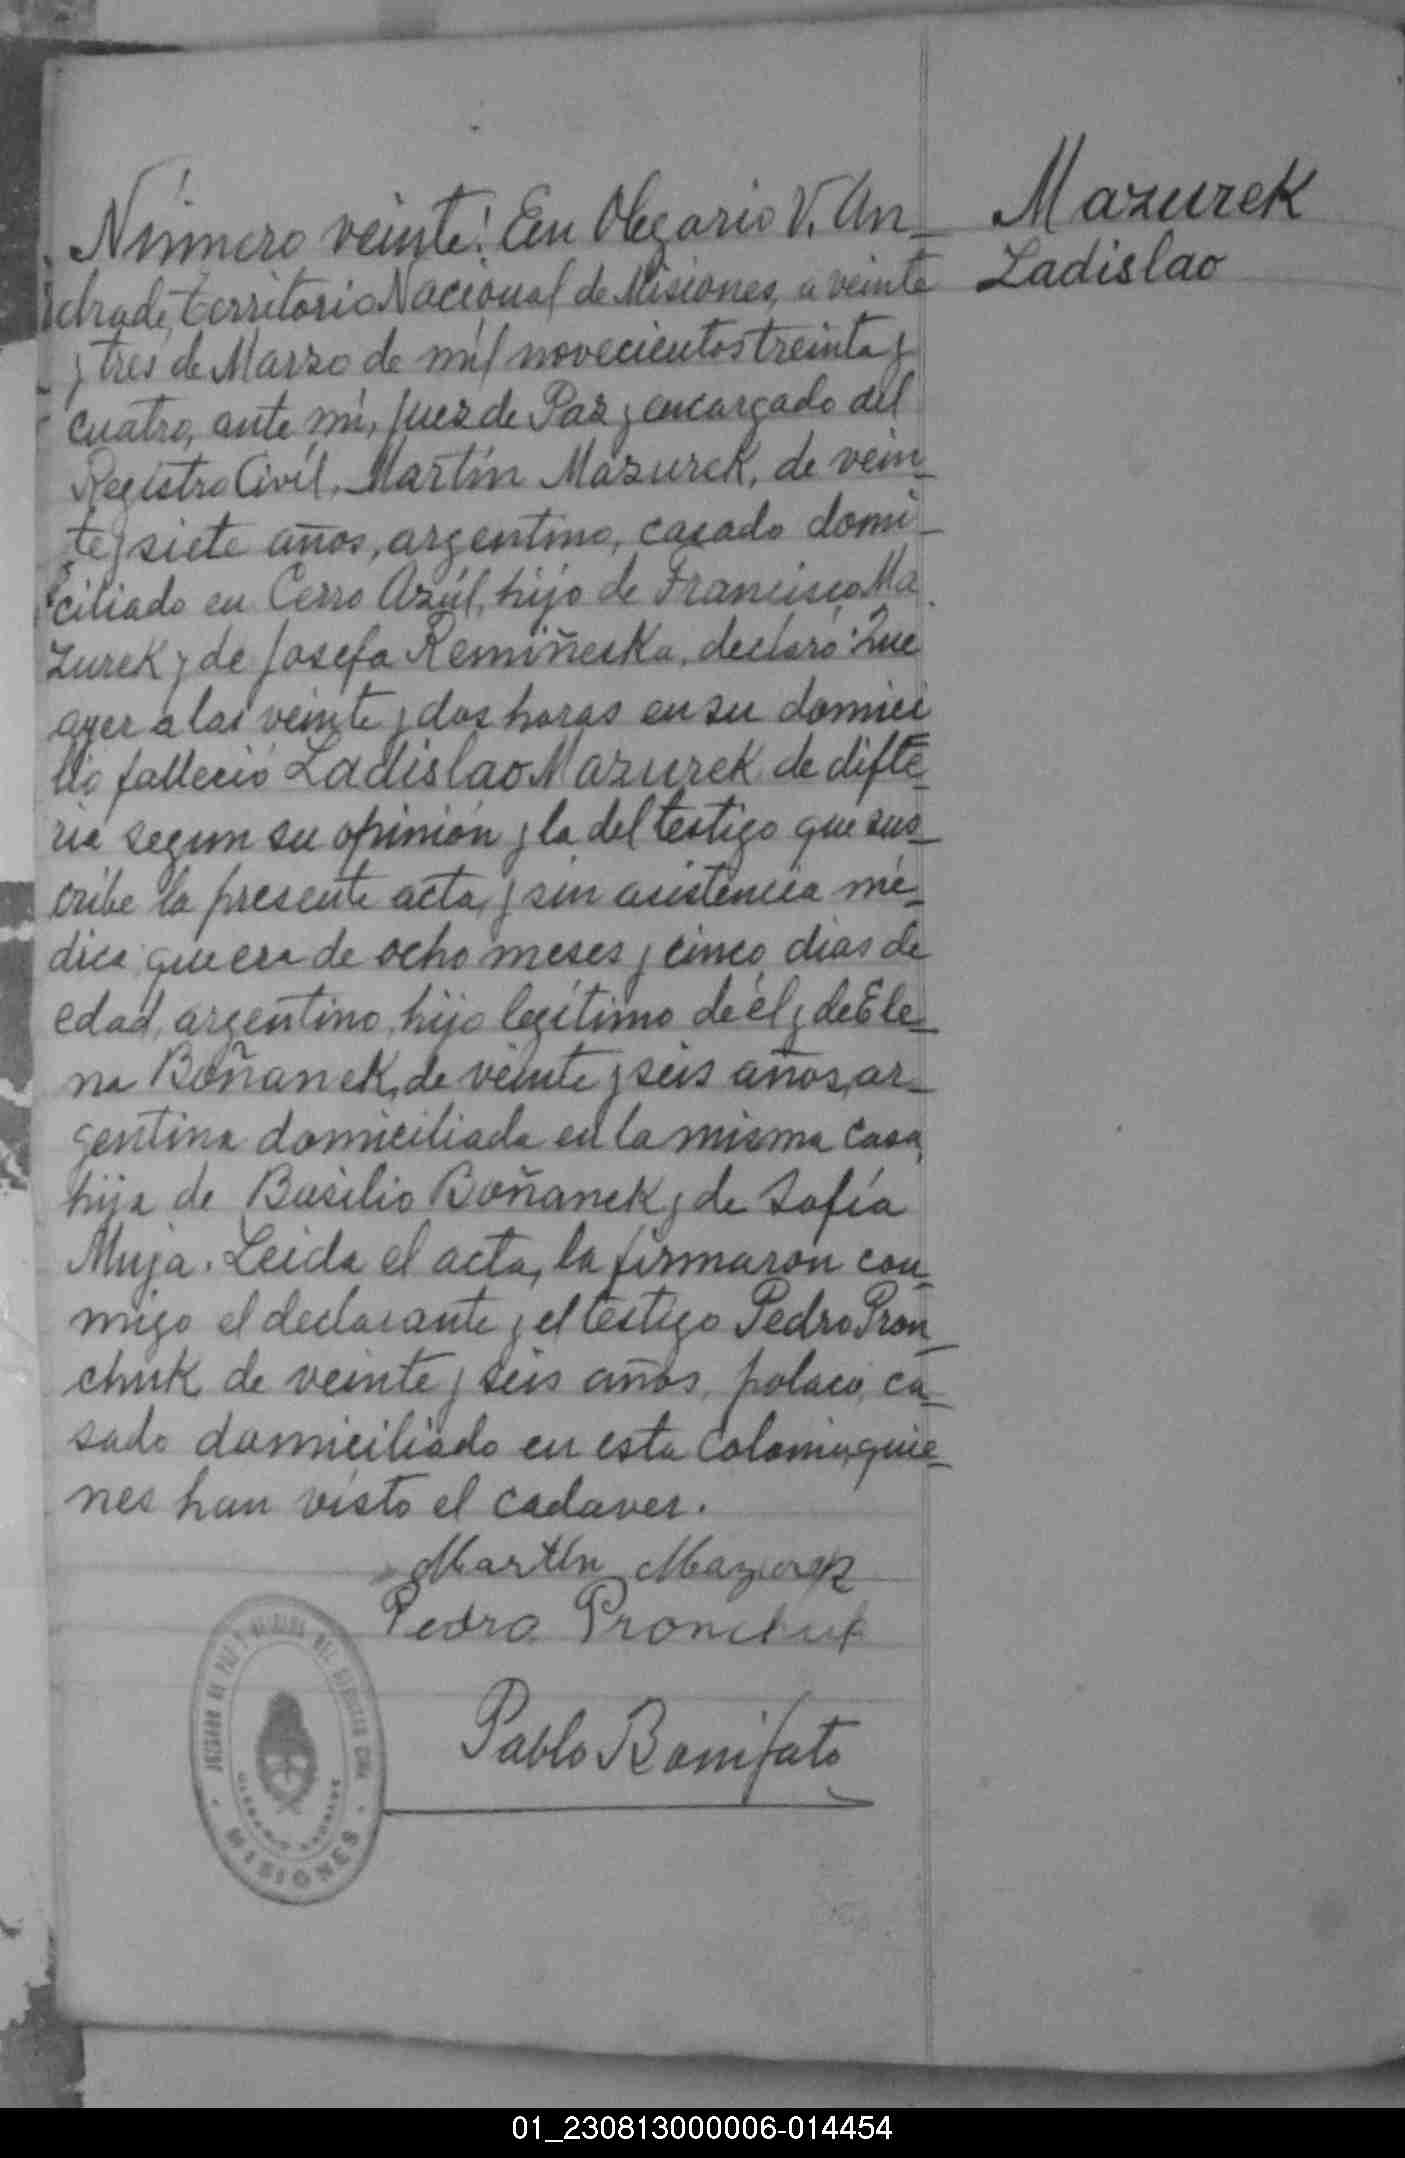 Mazurek
Ladislao
Número veinte: En Olegario V. An-
drade, territorio Nacional de Misiones, a veinte
y tres de Marzo de mil novecientos treinta y
cuatro, ante mi, Juez de Paz y encargado del
Registro Civil, Martín Mazurek, de vein-
te y siete años, argentino, casado domi-
ciliado en Cerro Azúl, hijo de Francisco Ma
zurek y de Josefa Remiñeska, declaró: Que
ayer a las veinte y dos horas en su domici
lio falleció Ladislao Mazurek de difte-
ria segun su opinión y la del testigo que sus-
cribe la presente acta, y sin asistencia mé-
dica que era de ocho meses y cinco dias de
edad, argentino, hijo legítimo de él y de Ele-
na Boñanek, de veinte y seis años, ar-
gentina domiciliada en la misma casa,
hija de Basilio Boñanek y de Sofía
Muja. Leida el acta, la firmaron con-
migo el declarante y el testigo Pedro Pron-
chuk de veinte y seis años, polaco, ca-
sado domiciliado en esta colonia, quie-
nes han visto el cadaver.
Martín Mazurek
Pedro Pronchuk
Pablo Bonifato
JUZGADO DE PAZ Y OFICINA DEL REGISTRO CIVIL
OLEGARIO V. ANDRADE
MISIONES
01_230813000006-014454